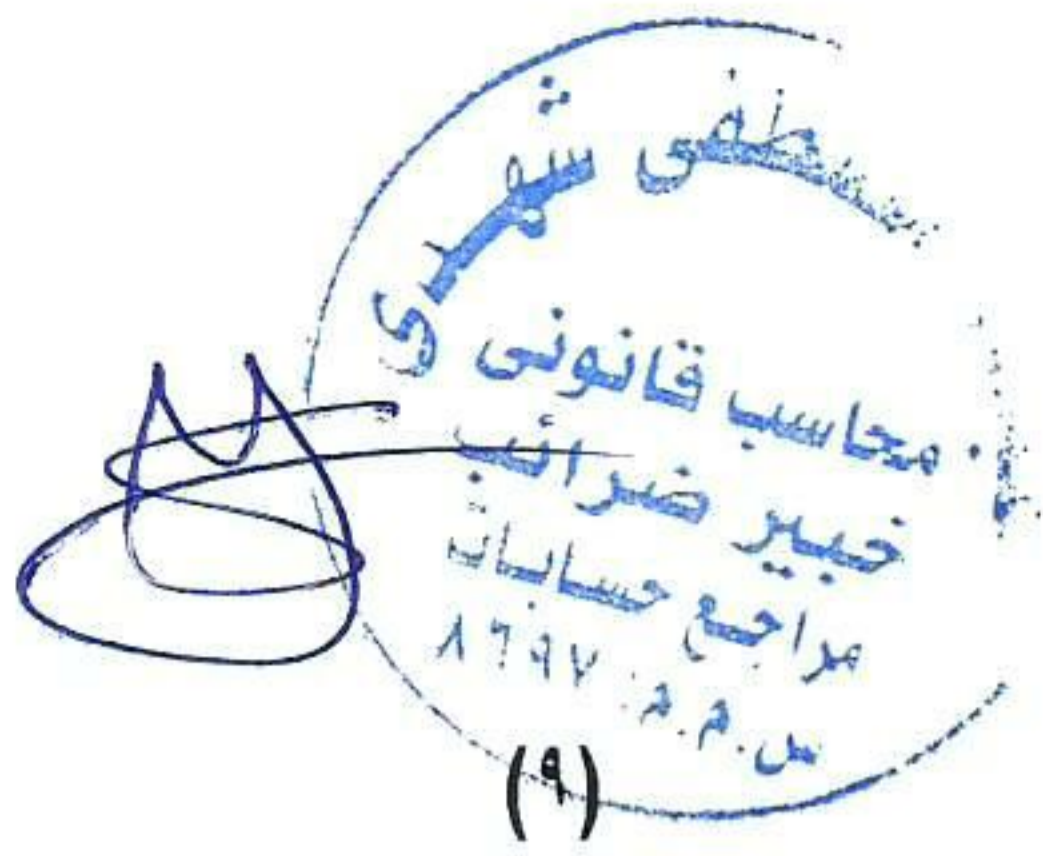 مصطفى شهدى
محاسب قانونى
خبير ضرائب
مراجع حسابات
س.م.م: ٨٦٩٧
(٩)